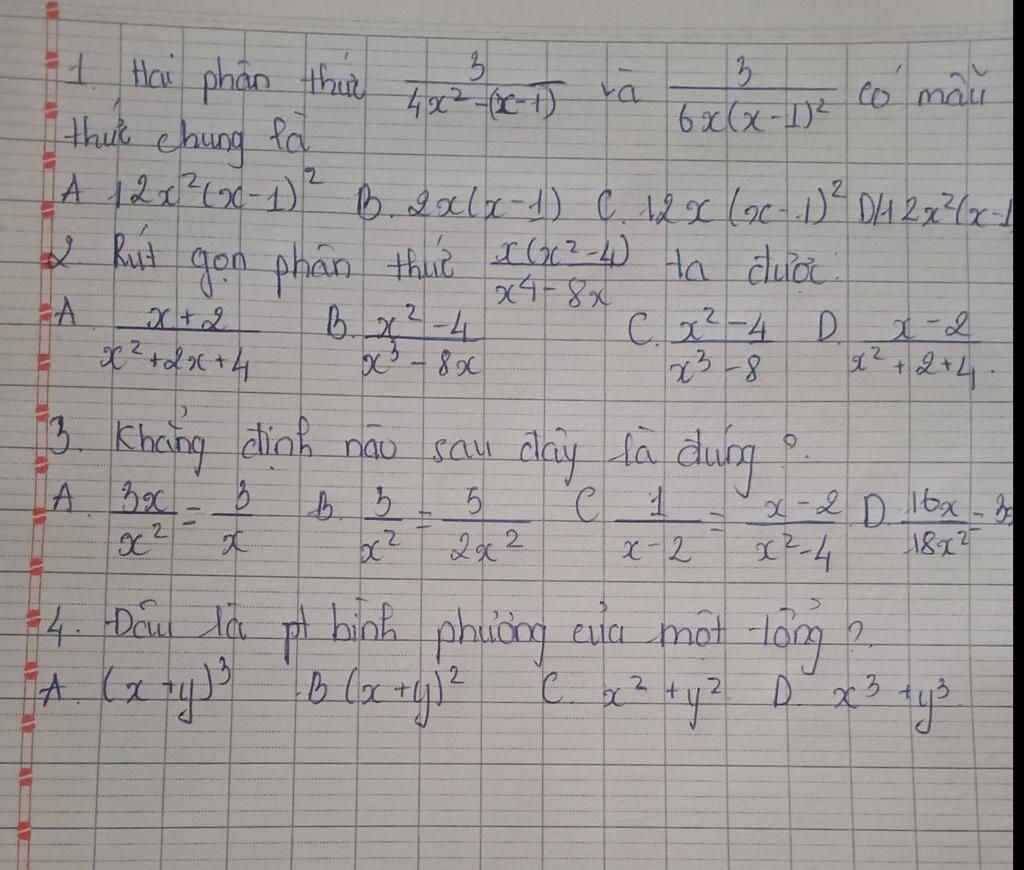 1. Hai phân thức 3/(4x² -(x-1)) và 3/(6x(x-1)²) có mẫu
thức chung là
A 12x²(x-1)² B. 2x(x-1) C. 12x(x-1)² D. 12x²(x-1
2 Rút gọn phân thức x(x²-4)/(x4-8x) ta được:
A. (x+2)/(x²+2x+4) B. (x²-4)/(x³-8x) C. (x²-4)/(x³-8) D. (x-2)/(x²+2+4).
3. Khẳng định nào sau đây là đúng?
A. 3x/x² = 3/x B. 3/x² = 5/2x² C 1/(x-2) = (x-2)/(x²-4) D. 16x/18x² =
4. Đâu là pt bình phương của một tổng?
A. (x+y)³ B (x+y)² C. x²+y² D. x³+y³